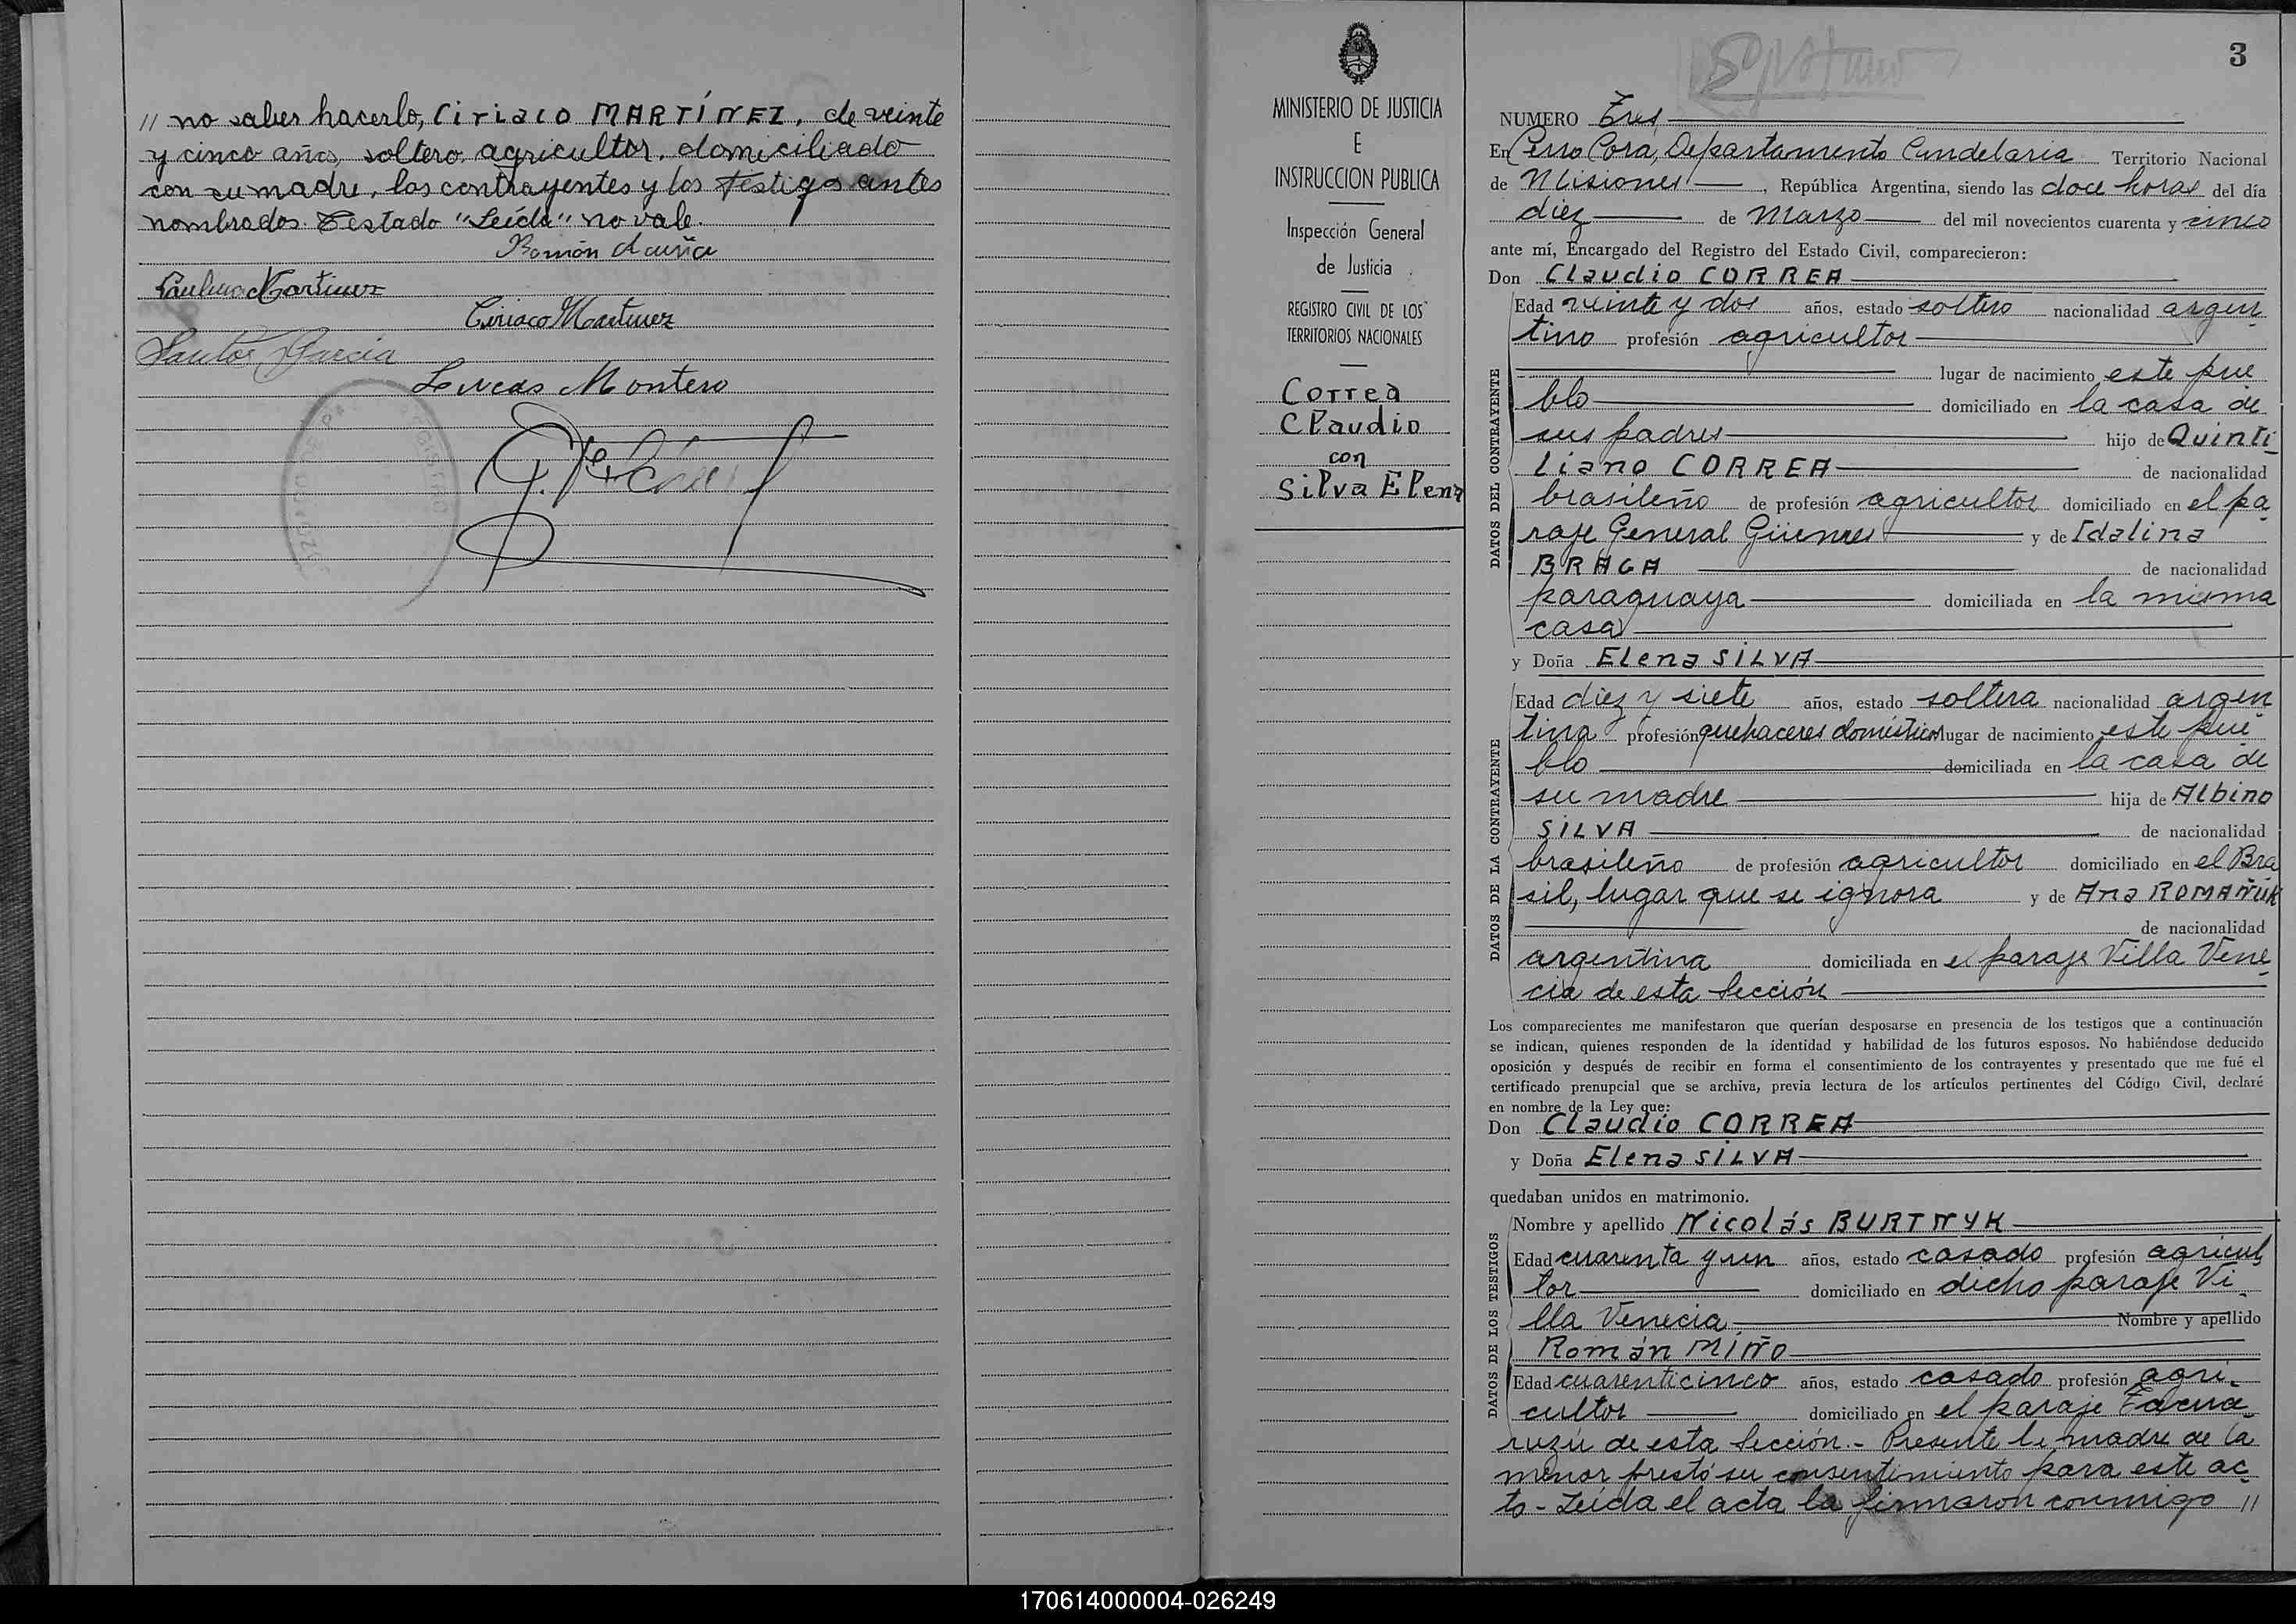 // no saber hacerlo, Ciriaco MARTÍNEZ, de veinte
y cinco años, soltero, agricultor, domiciliado
con su madre, los contrayentes y los testigos antes
nombrados. Testado "Leída" no vale.
Ramón Acuña
Paulina Martinez
Ciriaco Martinez
Santos Garcia
Lucas Montero
MINISTERIO DE JUSTICIA
E
INSTRUCCION PUBLICA
Inspección General
de Justicia
REGISTRO CIVIL DE LOS
TERRITORIOS NACIONALES
Correa
Claudio
con
Silva Elena
3
NUMERO Tres
En Cerro Corá, Departamento Candelaria Territorio Nacional
de Misiones, República Argentina, siendo las doce horas del día
diez de Marzo del mil novecientos cuarenta y cinco
ante mí, Encargado del Registro del Estado Civil, comparecieron:
Don Claudio CORREA
DATOS DEL CONTRAYENTE
Edad veinte y dos años, estado soltero nacionalidad argen
tino profesión agricultor
lugar de nacimiento este pue
blo domiciliado en la casa de
sus padres hijo de Quinti
liano CORREA de nacionalidad
brasileño de profesión agricultor domiciliado en el pa
raje General Güemes y de Idalina
BRAGA de nacionalidad
paraguaya domiciliada en la misma
casa
y Doña Elena SILVA
DATOS DE LA CONTRAYENTE
Edad diez y siete años, estado soltera nacionalidad argen
tina profesión quehaceres domésticos lugar de nacimiento este pue
blo domiciliada en la casa de
su madre hija de Albino
SILVA de nacionalidad
brasileño de profesión agricultor domiciliado en el Bra
sil, lugar que se ignora y de Ana ROMAÑUK
de nacionalidad
argentina domiciliada en el paraje Villa Vene
cia de esta Sección
Los comparecientes me manifestaron que querían desposarse en presencia de los testigos que a continuación
se indican, quienes responden de la identidad y habilidad de los futuros esposos. No habiéndose deducido
oposición y después de recibir en forma el consentimiento de los contrayentes y presentado que me fué el
certificado prenupcial que se archiva, previa lectura de los artículos pertinentes del Código Civil, declaré
en nombre de la Ley que:
Don Claudio CORREA
y Doña Elena SILVA
quedaban unidos en matrimonio.
DATOS DE LOS TESTIGOS
Nombre y apellido Nicolás BURTNYK
Edad cuarenta y un años, estado casado profesión agricul
tor domiciliado en dicho paraje Vi
lla Venecia Nombre y apellido
Román MIÑO
Edad cuarenticinco años, estado casado profesión agri
cultor domiciliado en el paraje Tacua
ruzú de esta Sección.- Presente la madre de la
menor prestó su consentimiento para este ac
to - Leída el acta la firmaron conmigo //
170614000004-026249